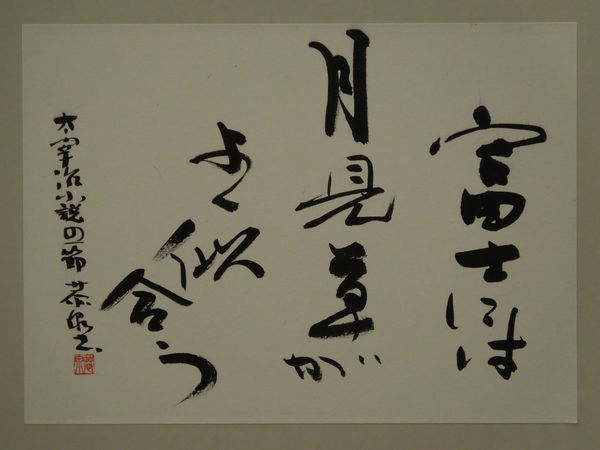 富士には
月見草が
よく似合う
太宰治小説の一節